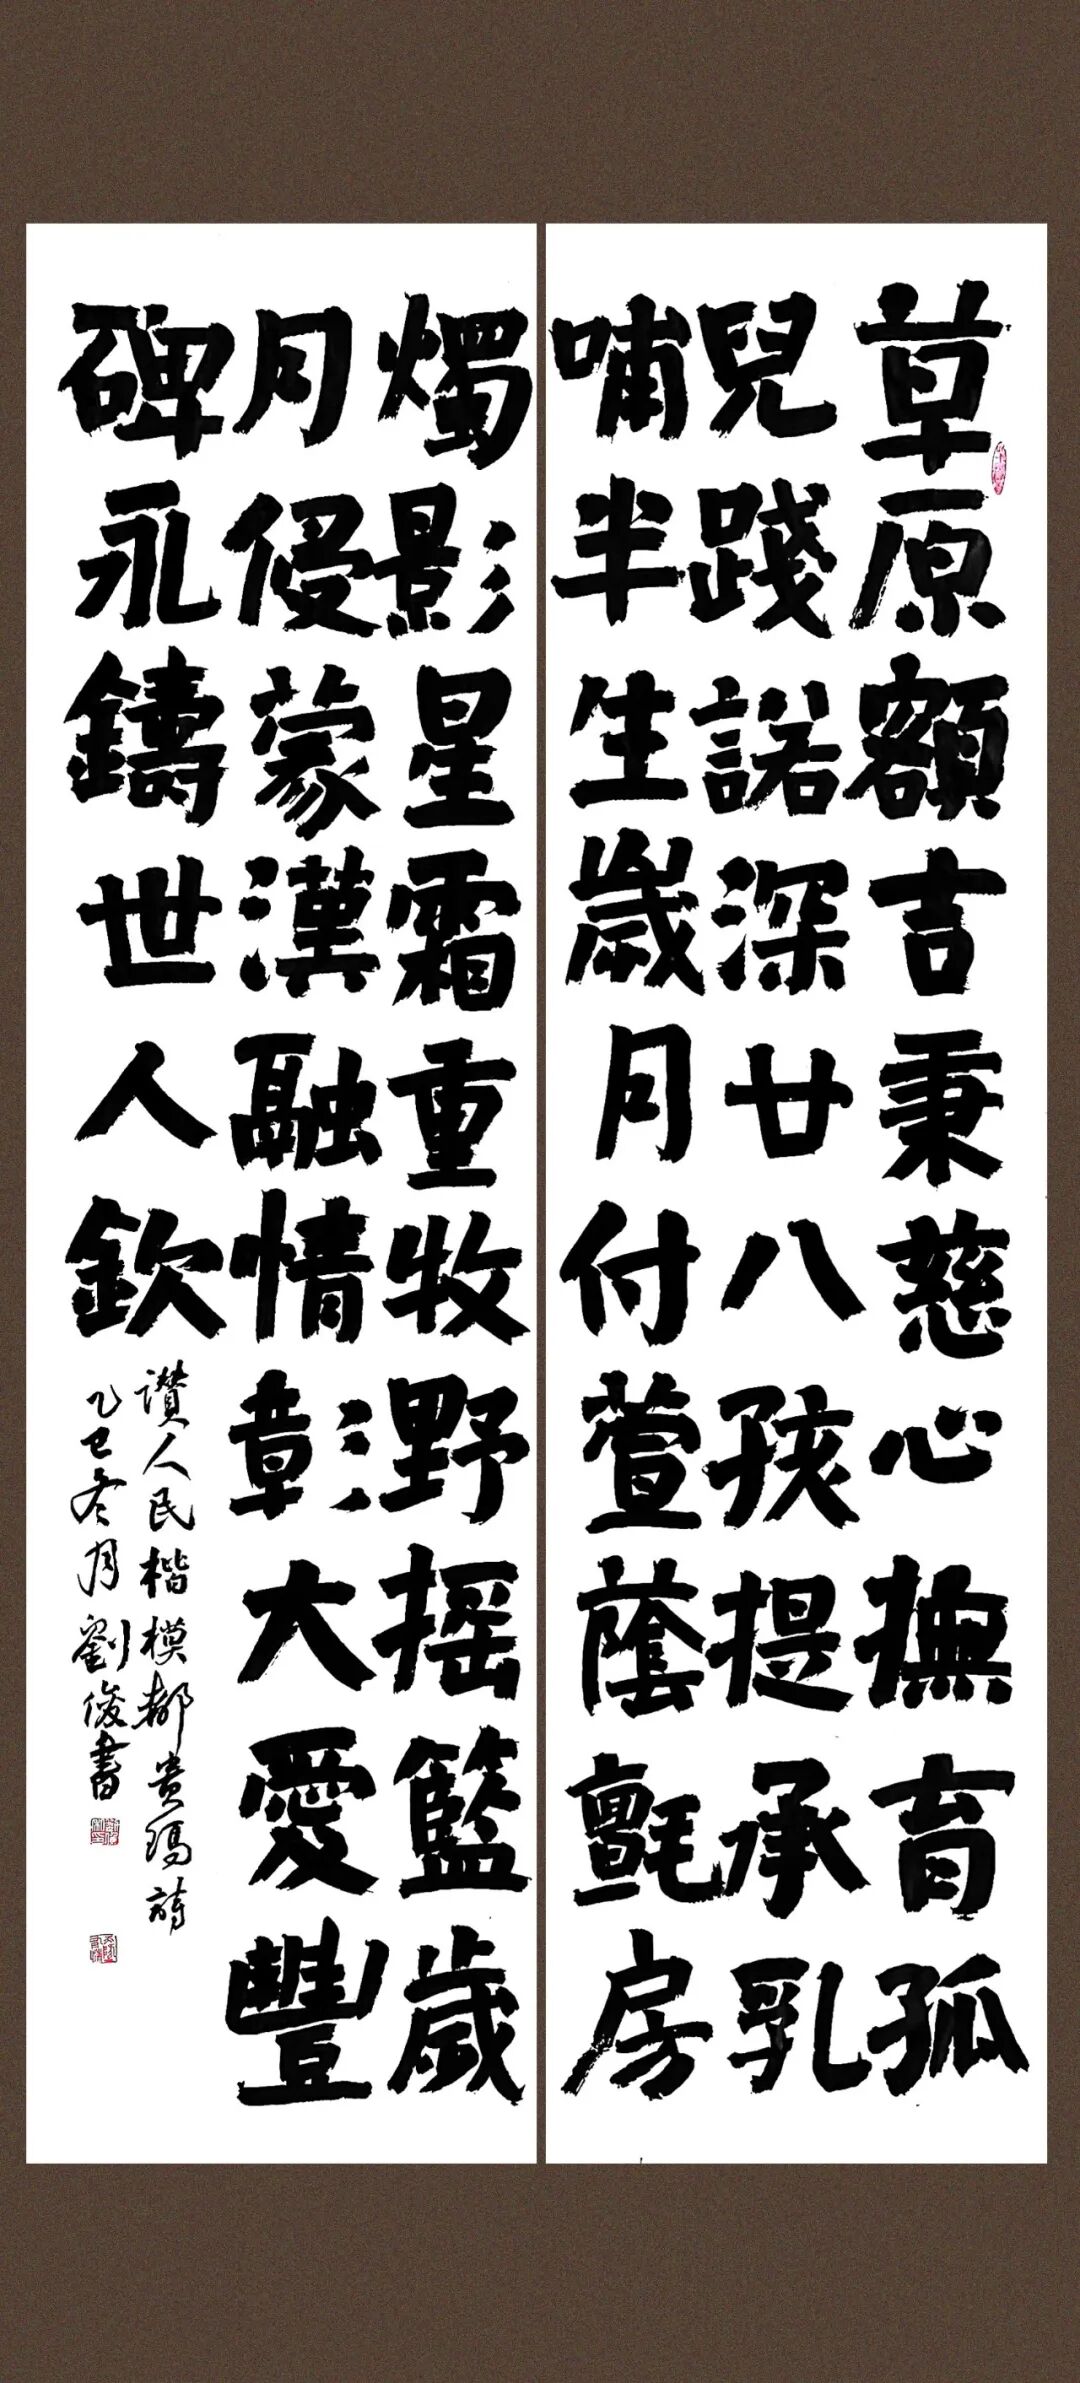 草原額吉秉慈心撫育孤
兒踐諾深廿八孩提承乳
哺半生歲月付萱蔭氈房
燭影星霜重牧野摇籃歲
月侵蒙漢融情彰大愛豐
碑永鑄世人欽
讃人民楷模都贵瑪詩
乙巳冬月劉俊書